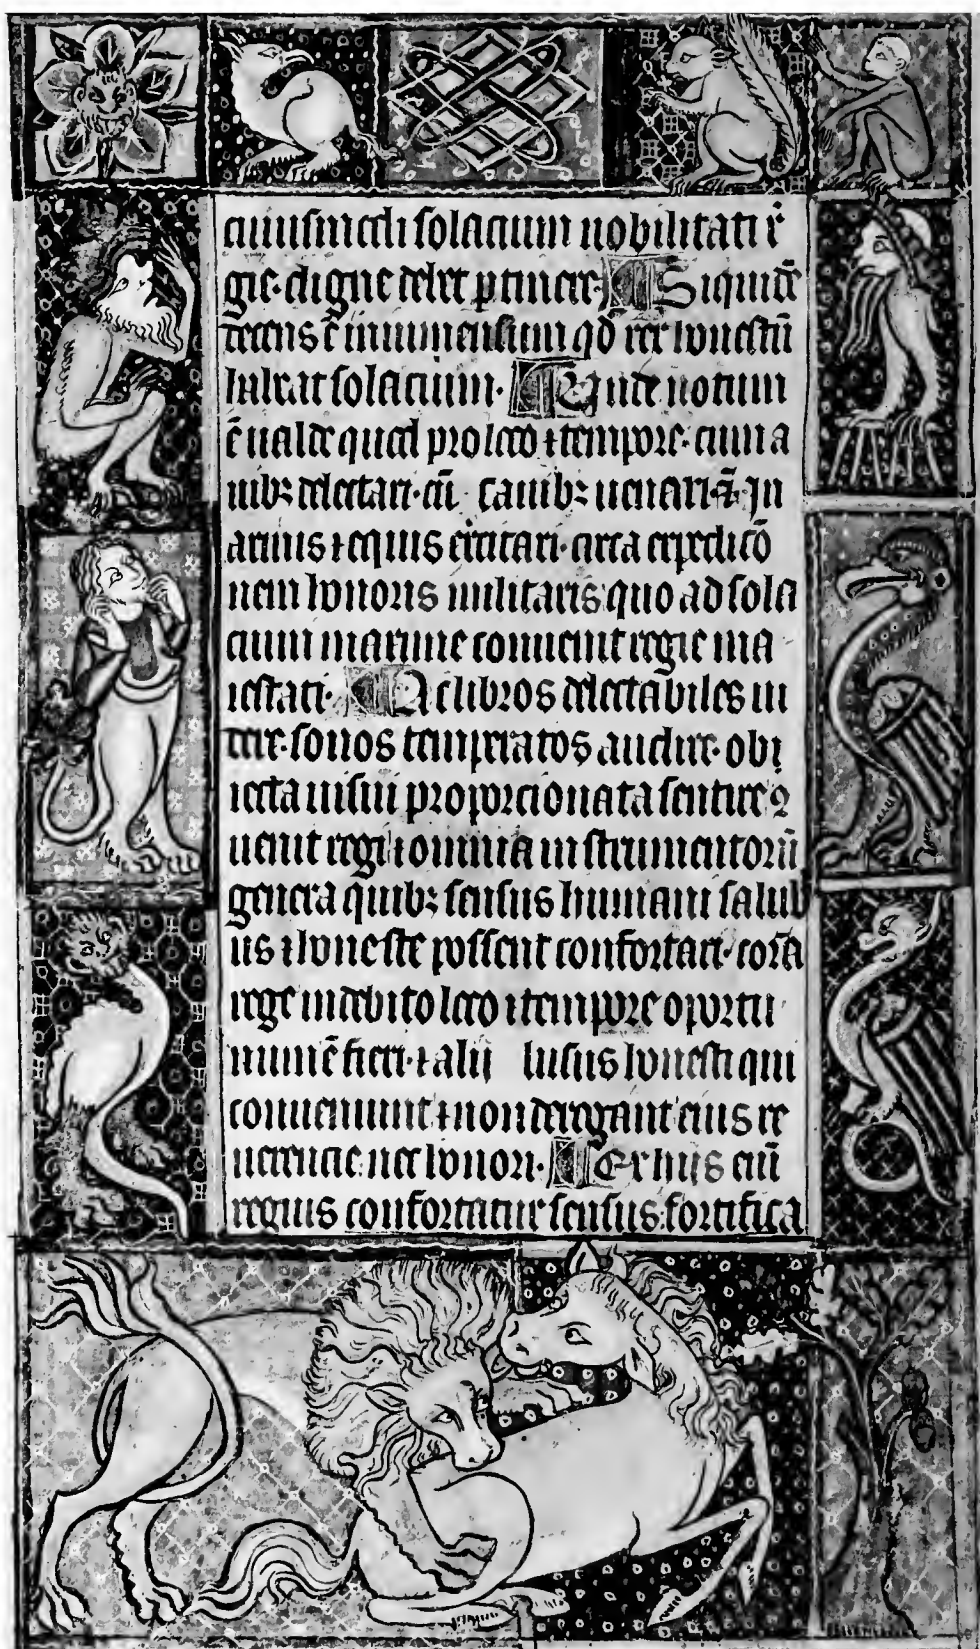 cuiusmodi solacium nobilitati r̄
gie. digne debet ptinere. Siquidē
decens ē inmmensium qd rex honestū
habeat solacium. Unde notum
ē ualde quod pro loco ⁊ tempore. cum a
uibꝫ delectari. cū canibꝫ uenari. ⁊ In
armis ⁊ equis excitari. circa expedicō
nem honoris militaris quo ad sola
cium maxime conuenit regie ma
iestati. Ac libros delectabiles in
tere. sonos temperatos audire. obi
iecta uisui proporcionata sentire ꝯ
uenit regi ⁊ omnia instrumentorū
genera quibꝫ sensus humani salub
us ⁊ honeste possent confortari. corā
rege in debito loco ⁊ tempore oportu
num ē fieri. ⁊ alij lusus honesti qui
conueniunt ⁊ non derogant eius re
uerencie. nec honori. Ex hijs enī
regius confortatur sensus. fortifica